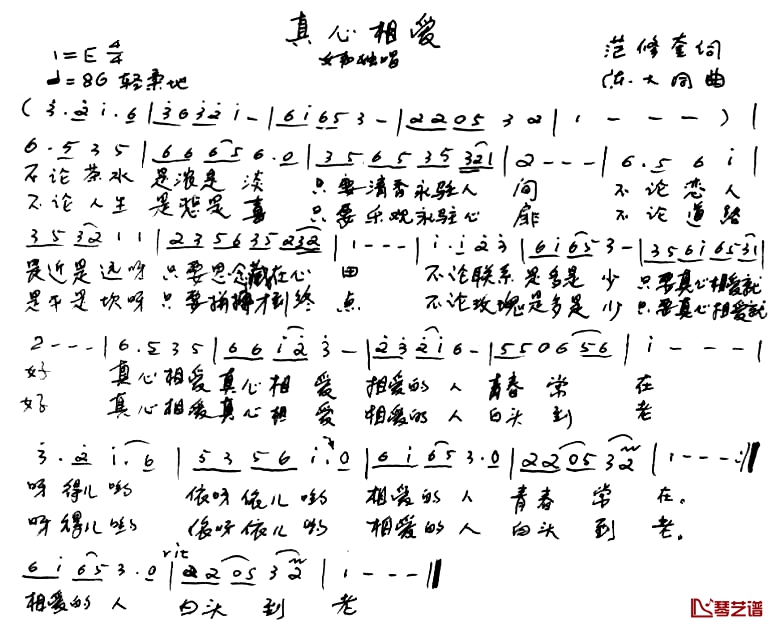 真心相爱
女声独唱
1=E 4/4
范修奎词
♩=86 轻柔地
陈大同曲
(3̇.2̇ i.6|3̇6 3̇2̇ i-|6i 65 3-|2205 3 2|1 - - -)|
6.5 3 5|66 65 6.0|35 65 35 321|2---|6.5 6 i|
不论茶水 是浓是淡 只要清香永驻人间 不论恋人
不论人生 是愁是喜 只要乐观永驻心扉 不论道路
35 32 1 1|235635 232|1---|i.i 2̇ 3̇|6i 65 3-|356i6531|
是近是远呀 只要思念藏在心田 不论联系是多是少 只要真心相爱就
是平是坎呀 只要拼搏才到终点 不论玫瑰是多是少 只要真心相爱就
2---|6.5 3 5|66 i2̇ 3̇-|2̇3̇ 2̇i 6-|5506 56|i---|
好 真心相爱真心相爱 相爱的人青春常在
好 真心相爱真心相爱 相爱的人白头到老
3̇.2̇ i.6|5356 i.0|6i 65 3.0|2205 32|1---:||
呀得儿哟 依呀依儿哟 相爱的人 青春常在。
呀得儿哟 依呀依儿哟 相爱的人 白头到老。
rit
6i 65 3.0|2205 32|1---||
相爱的人 白头到老
琴艺谱